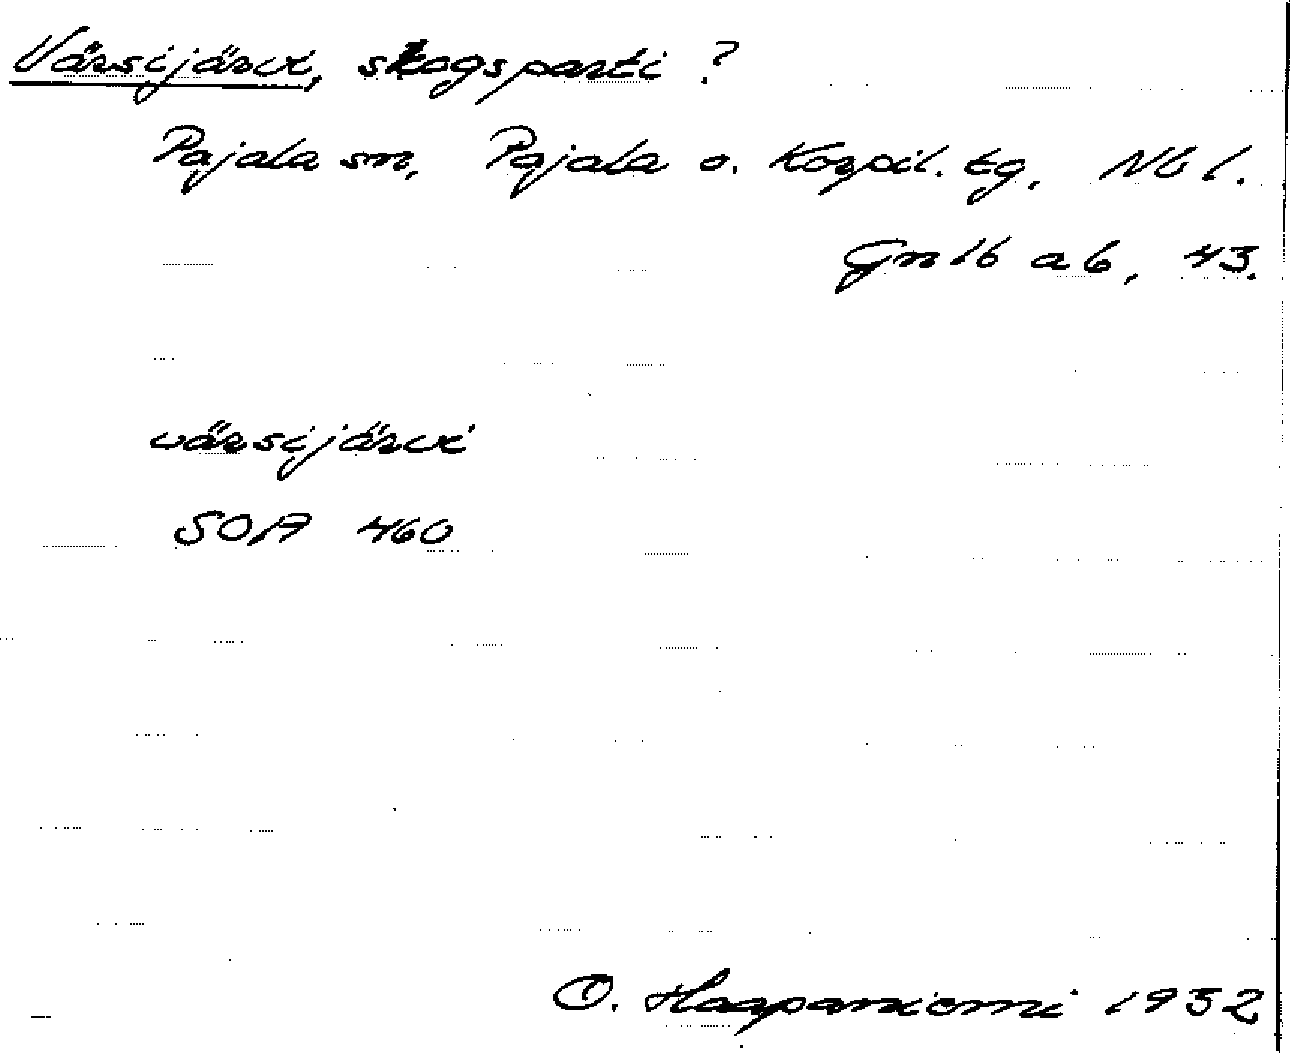 Värsijärvi, skogsparti ?
Pajala sn, Pajala o. Korpil. tg, Nb l.
Gn 16 ab, 43.
värsijärvi
SOA 460
O. Haapaniemi 1932